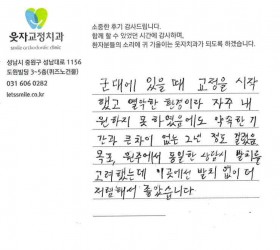 소중한 후기 감사드립니다.
함께 할 수 있었던 시간에 감사하며,
환자분들의 소리에 귀 기울이는 웃자치과가 되도록 하겠습니다.
웃자교정치과
smile orthodontic clinic
성남시 중원구 성남대로 1156
도원빌딩 3~5층(퀴즈노건물)
031 606 0282
letssmile.co.kr
군대에 있을 때 교정을 시작
했고 열악한 환경이라 자주 내
원하지 못 하였음에도 약속한 기
간과 큰차이 없는 2년 정도 걸렸음
목동, 원주에서 동일한 상담시 발치를
고려했는데 이곳에선 발치 없이 더
저렴해서 좋았습니다